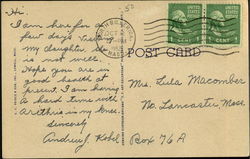 Hi
I am here for a
few days visiting
my daughter. She
is not well.
Hope you are in
good health at
present. I am having
a hard time with
Arthritis in my knee
Sincerely
Andrew J.
POST CARD
Mrs. Lula Macomber
No. Lancaster, Mass.
Box 76 A